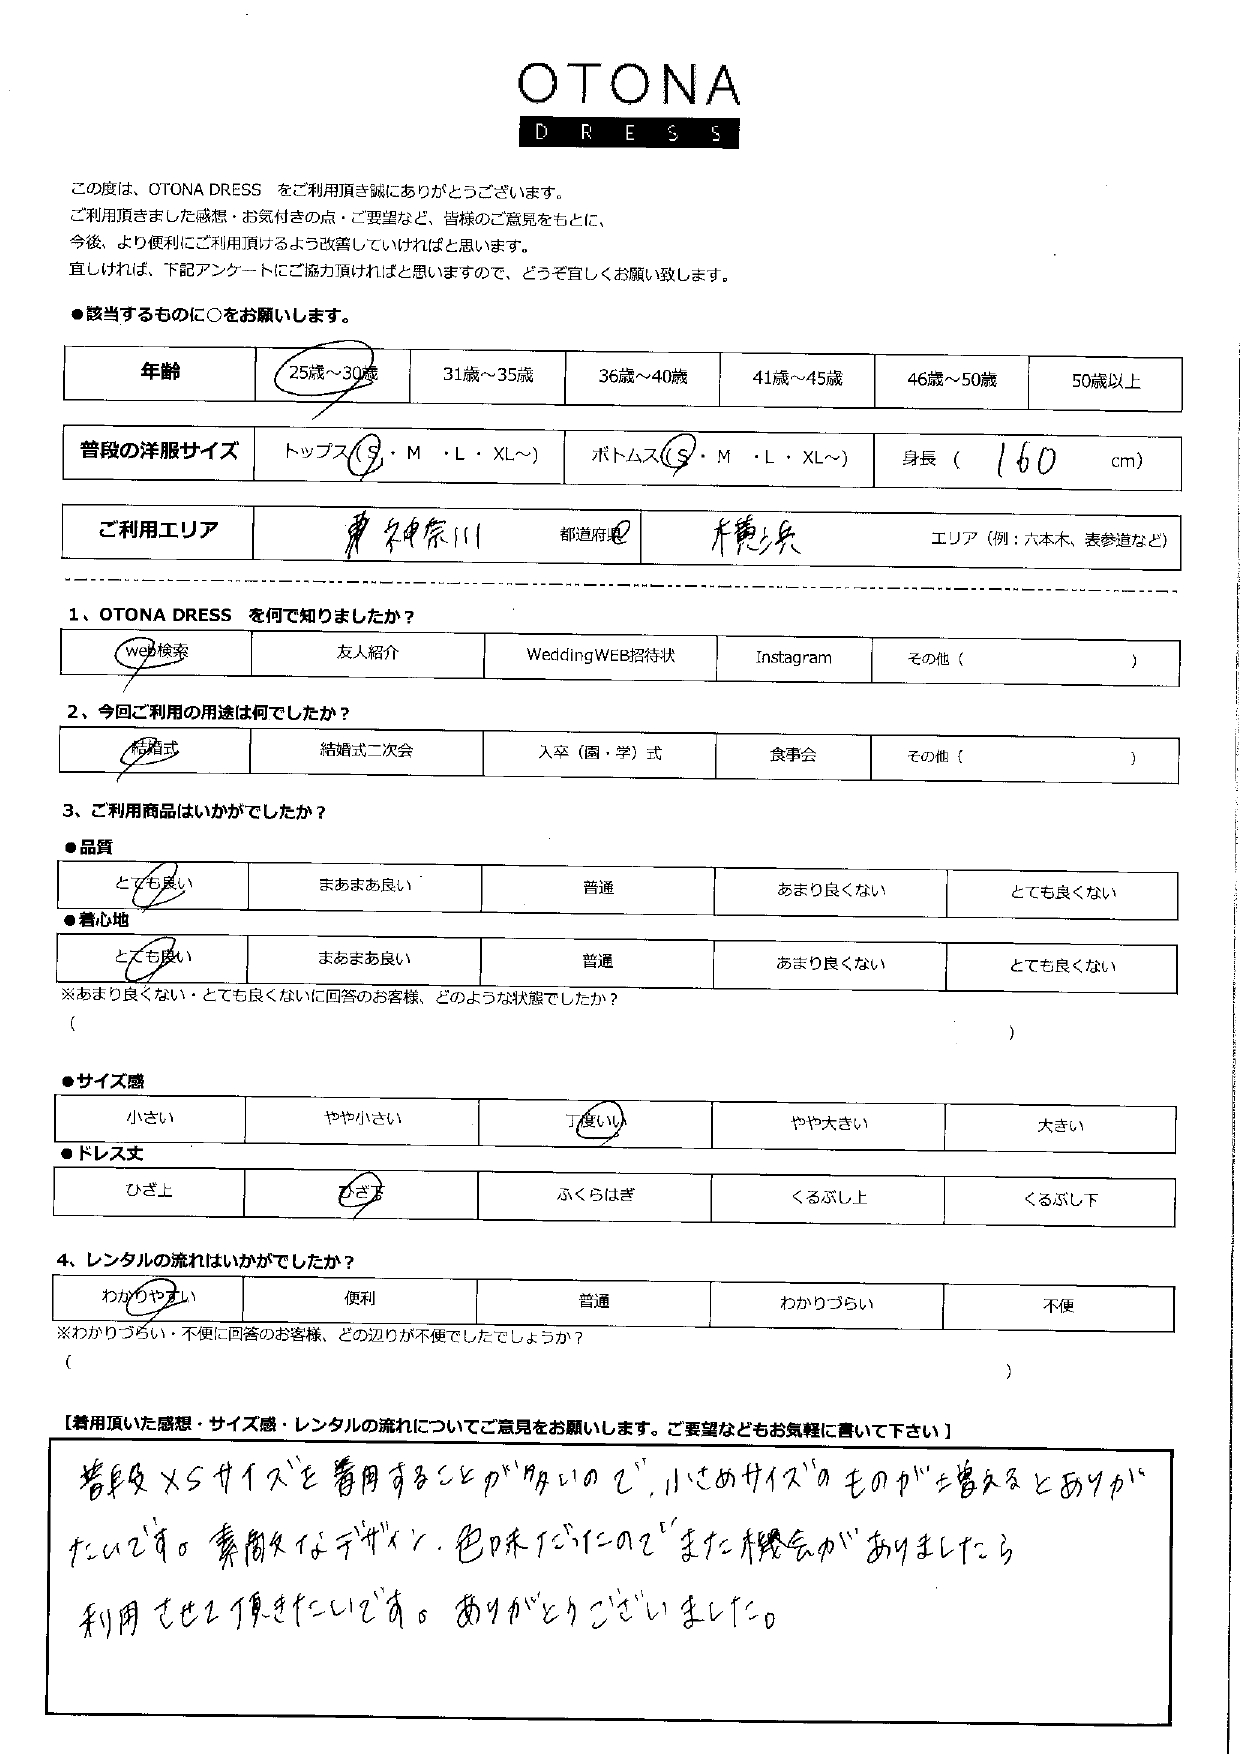 OTONA
DRESS
この度は、OTONA DRESS をご利用頂き誠にありがとうございます。
ご利用頂きました感想・お気付きの点・ご要望など、皆様のご意見をもとに、
今後、より便利にご利用頂けるよう改善していければと思います。
宜しければ、下記アンケートにご協力頂ければと思いますので、どうぞ宜しくお願い致します。
●該当するものに○をお願いします。
年齢 25歳～30歳 31歳～35歳 36歳～40歳 41歳～45歳 46歳～50歳 50歳以上
普段の洋服サイズ トップス（S・ M ・L ・ XL～） ボトムス（S・ M ・L ・ XL～） 身長（ 160 cm）
ご利用エリア 神奈川 都道府県 横浜 エリア（例：六本木、表参道など）
1、OTONA DRESS を何で知りましたか？
web検索 友人紹介 WeddingWEB招待状 Instagram その他（ ）
2、今回ご利用の用途は何でしたか？
結婚式 結婚式二次会 入卒（園・学）式 食事会 その他（ ）
3、ご利用商品はいかがでしたか？
●品質
とても良い まあまあ良い 普通 あまり良くない とても良くない
●着心地
とても良い まあまあ良い 普通 あまり良くない とても良くない
※あまり良くない・とても良くないに回答のお客様、どのような状態でしたか？
（ ）
●サイズ感
小さい やや小さい 丁度いい やや大きい 大きい
●ドレス丈
ひざ上 ひざ下 ふくらはぎ くるぶし上 くるぶし下
4、レンタルの流れはいかがでしたか？
わかりやすい 便利 普通 わかりづらい 不便
※わかりづらい・不便に回答のお客様、どの辺りが不便でしたでしょうか？
（ ）
【着用頂いた感想・サイズ感・レンタルの流れについてご意見をお願いします。ご要望などもお気軽に書いて下さい】
普段XSサイズを着用することが多いので、小さめサイズのものが増えるとありが
たいです。素敵なデザイン、色味だったのでまた機会がありましたら
利用させて頂きたいです。ありがとうございました。